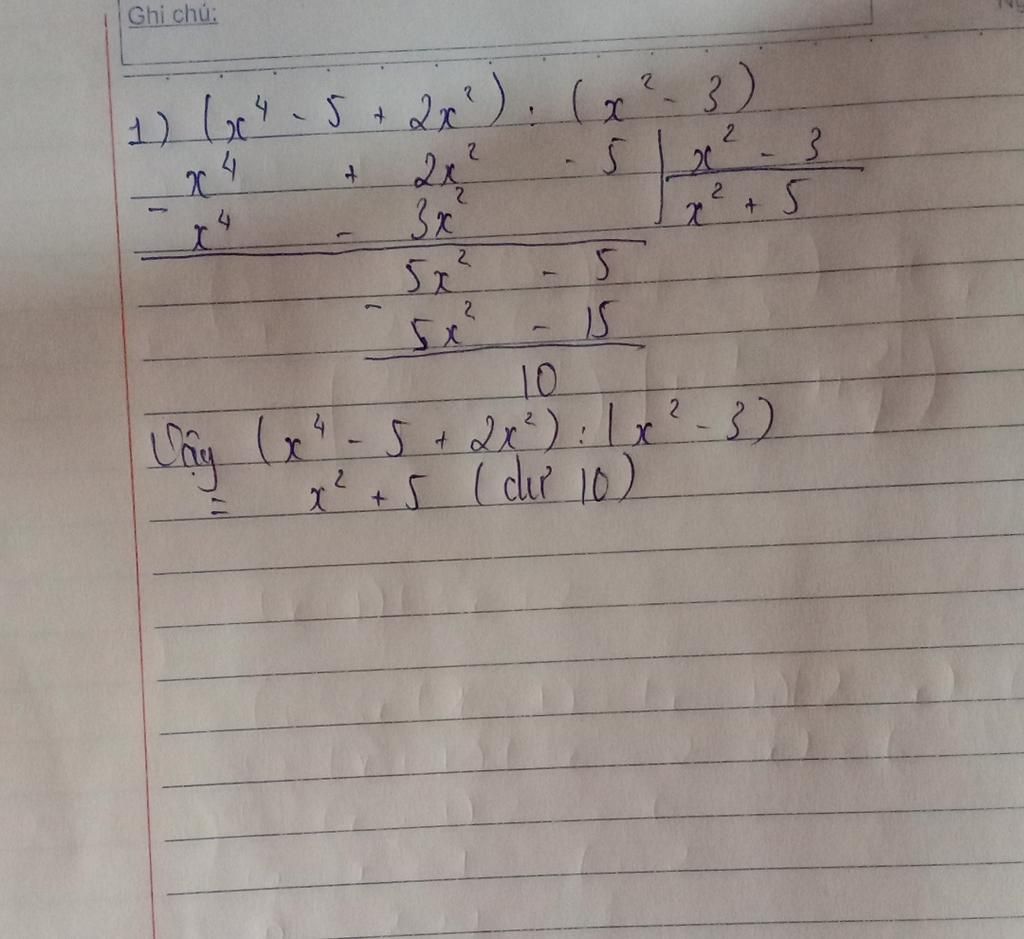 Ghi chú:
1) (x⁴ - 5 + 2x²) : (x² - 3)
x⁴ + 2x² - 5 | x² - 3
- x⁴ - 3x² | x² + 5
5x² - 5
- 5x² - 15
10
Vậy (x⁴ - 5 + 2x²) : (x² - 3)
= x² + 5 (dư 10)